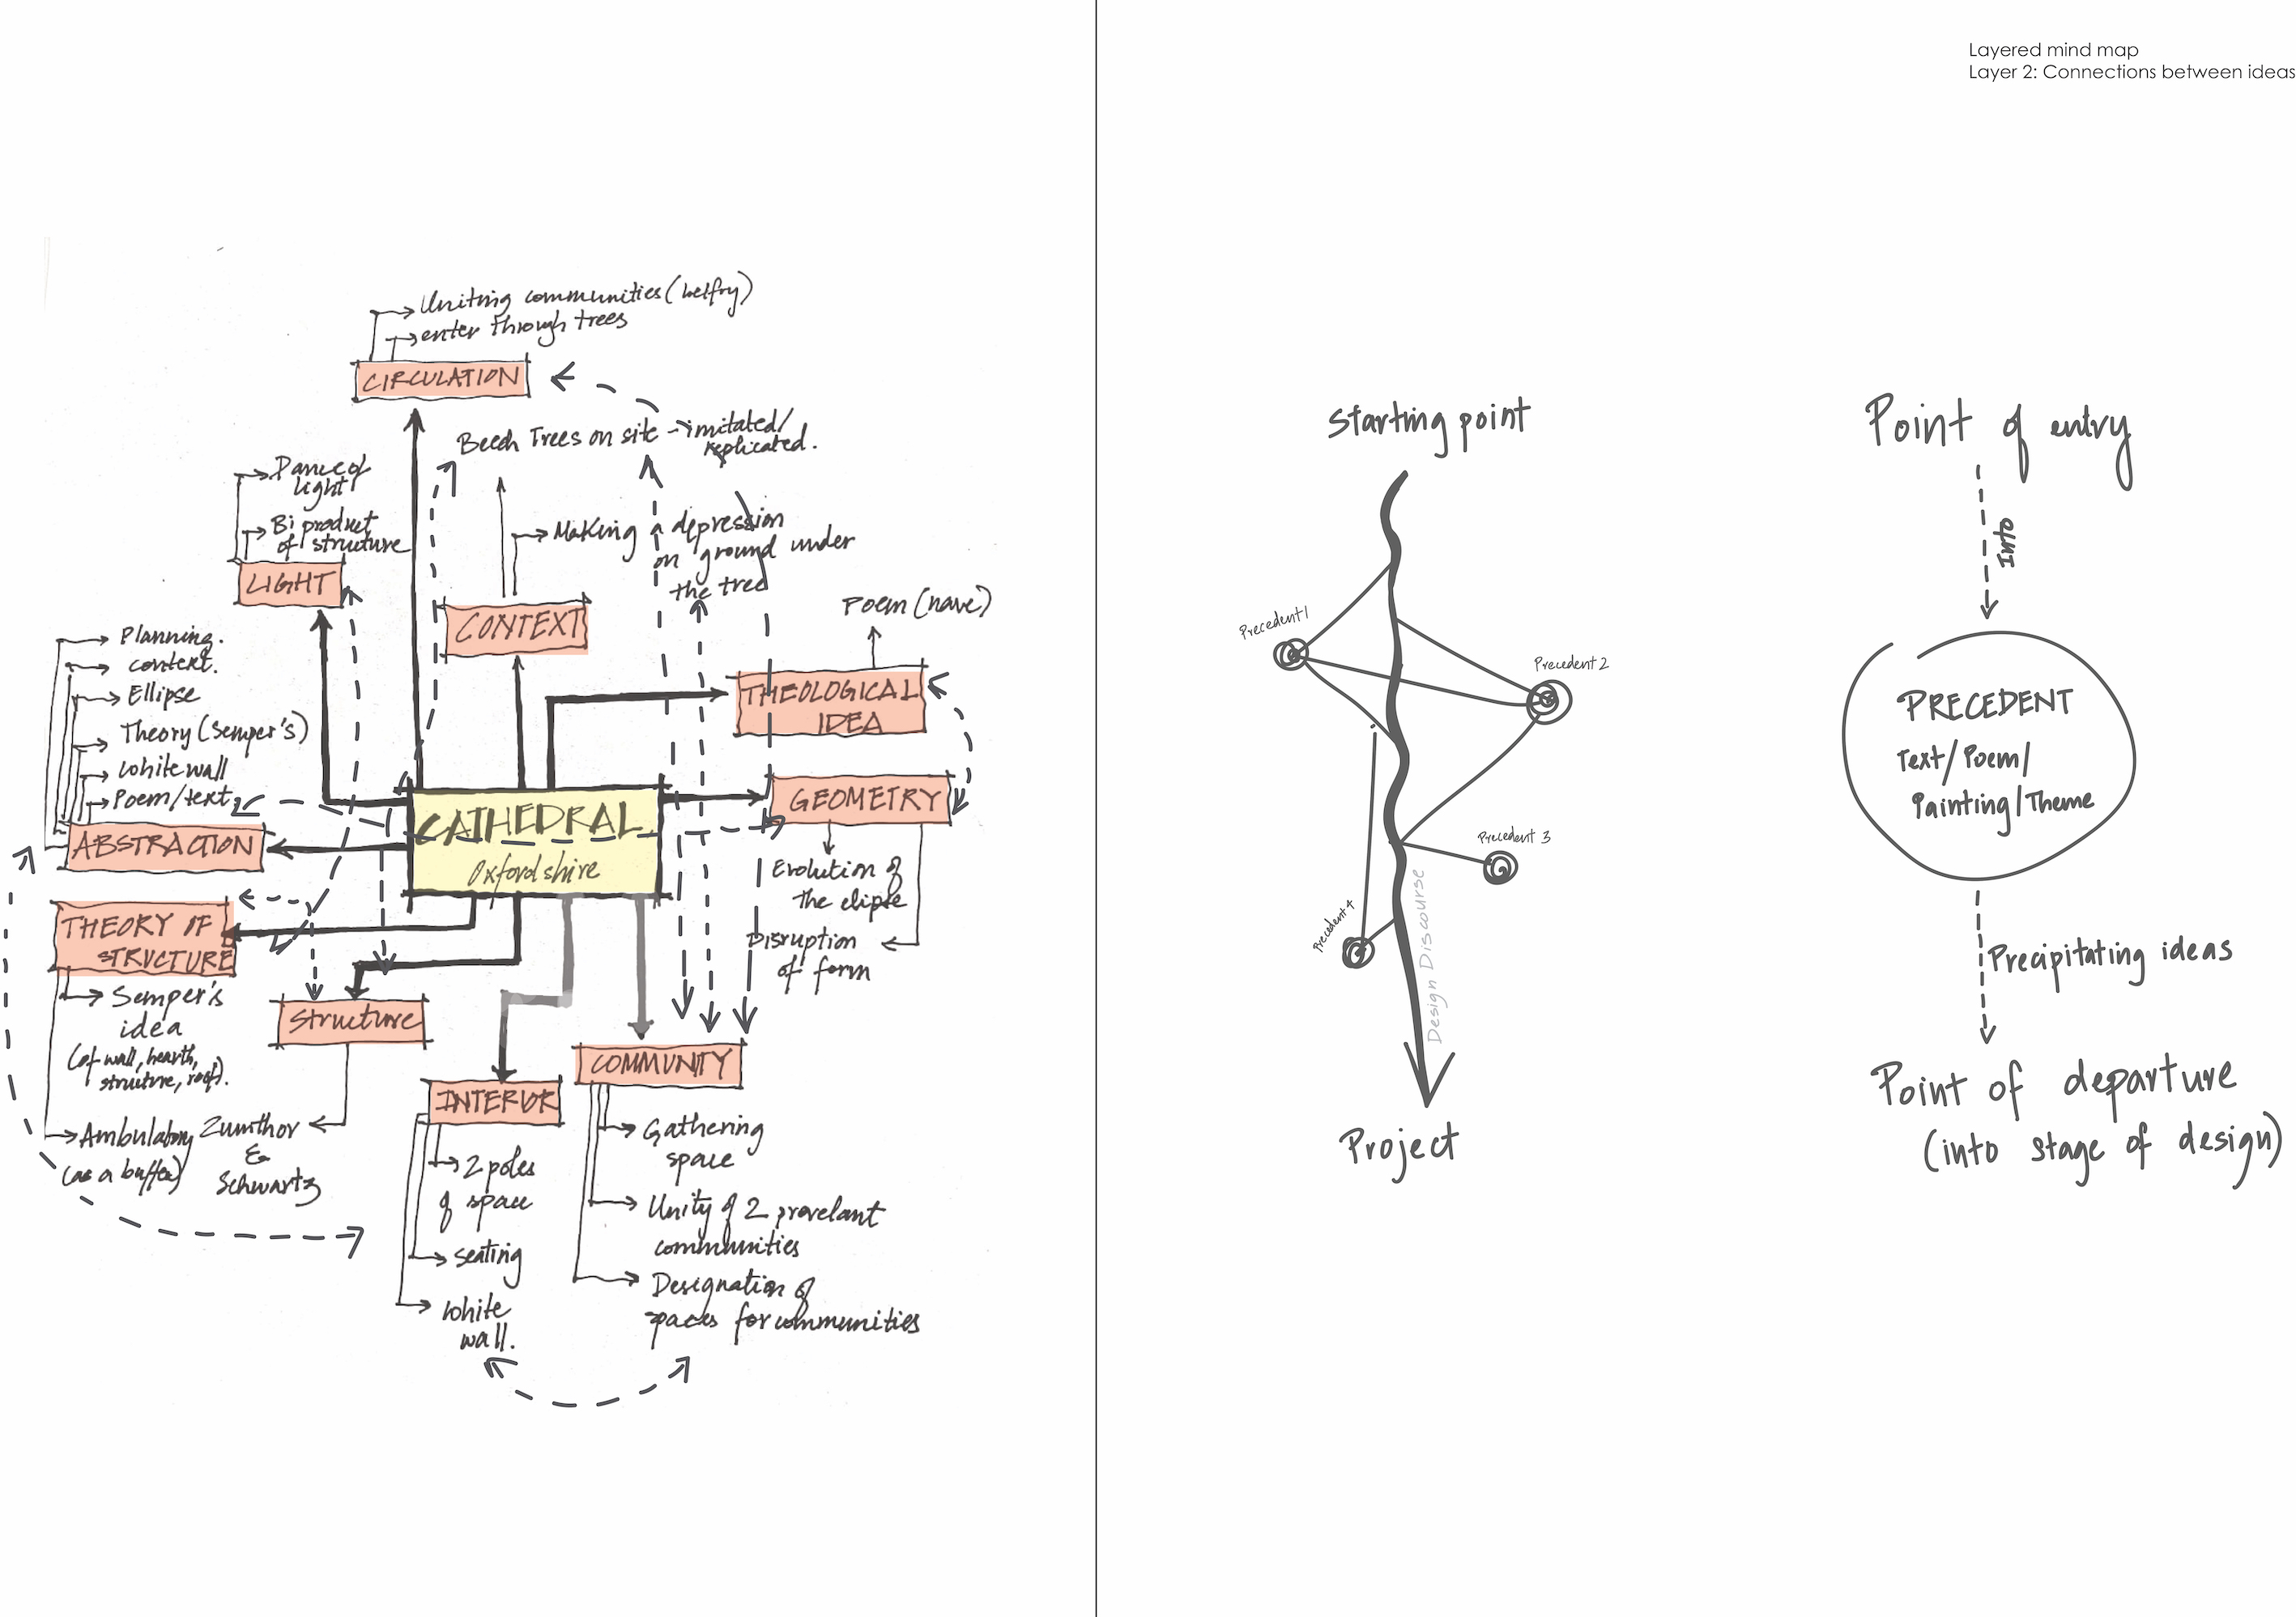 Layered mind map
Layer 2: Connections between ideas
Uniting communities (belfry)
enter through trees
CIRCULATION
Beech Trees on site - imitated/
replicated.
Dance of
light
Bi product
of structure
LIGHT
Making a depression
on ground under
the tree
CONTEXT
Poem (nave)
THEOLOGICAL
IDEA
Planning.
context.
Ellipse
Theory (semper's)
white wall
Poem/text
ABSTRACTION
CATHEDRAL
Oxfordshire
GEOMETRY
Evolution of
the elipse
Disruption
of form
THEORY OF
STRUCTURE
Semper's
idea
(of wall, hearth,
structure, roof).
Ambulatory
(as a buffer)
Structure
Zumthor
&
Schwartz
INTERIOR
2 poles
of space
seating
white
wall.
COMMUNITY
Gathering
space
Unity of 2 prevelant
communities
Designation of
spaces for communities
Starting point
Precedent 1
Precedent 2
Precedent 3
Precedent 4
Design Discourse
Project
Point of entry
Into
PRECEDENT
Text/Poem/
Painting/Theme
Precipitating ideas
Point of departure
(into stage of design)